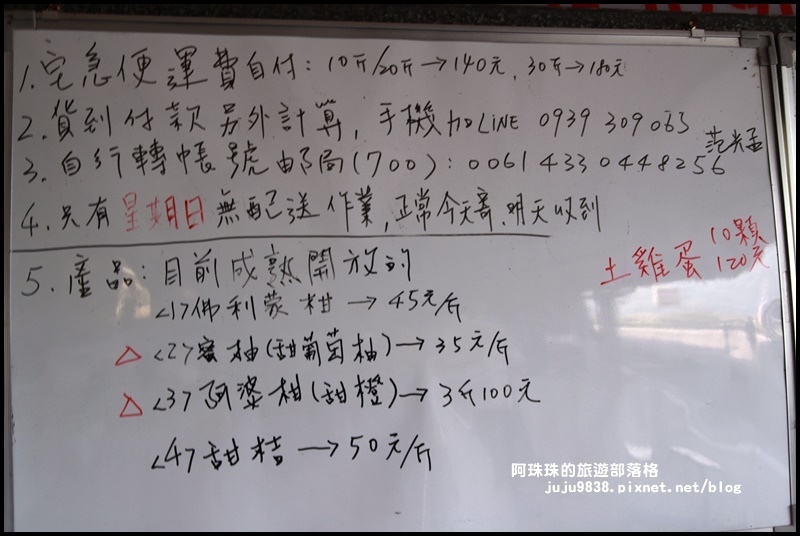 1.宅急便運費自付：10斤/20斤→140元．30斤→180元
2.貨到付款另外計算，手機加LINE 0939 309 063
3.自行轉帳號郵局(700)：0061433 0448256
4.只有星期日無配送作業，正常今天寄．明天收到
土雞蛋 10顆 120元
5.產品：目前成熟開放的
<1>佛利蒙柑→45元/斤
△<2>蜜柚(甜葡萄柚)→35元/斤
△<3>阿婆柑(甜橙)→3斤100元
<4>甜桔→50元/斤
阿珠珠的旅遊部落格
juju9838.pixnet.net/blog